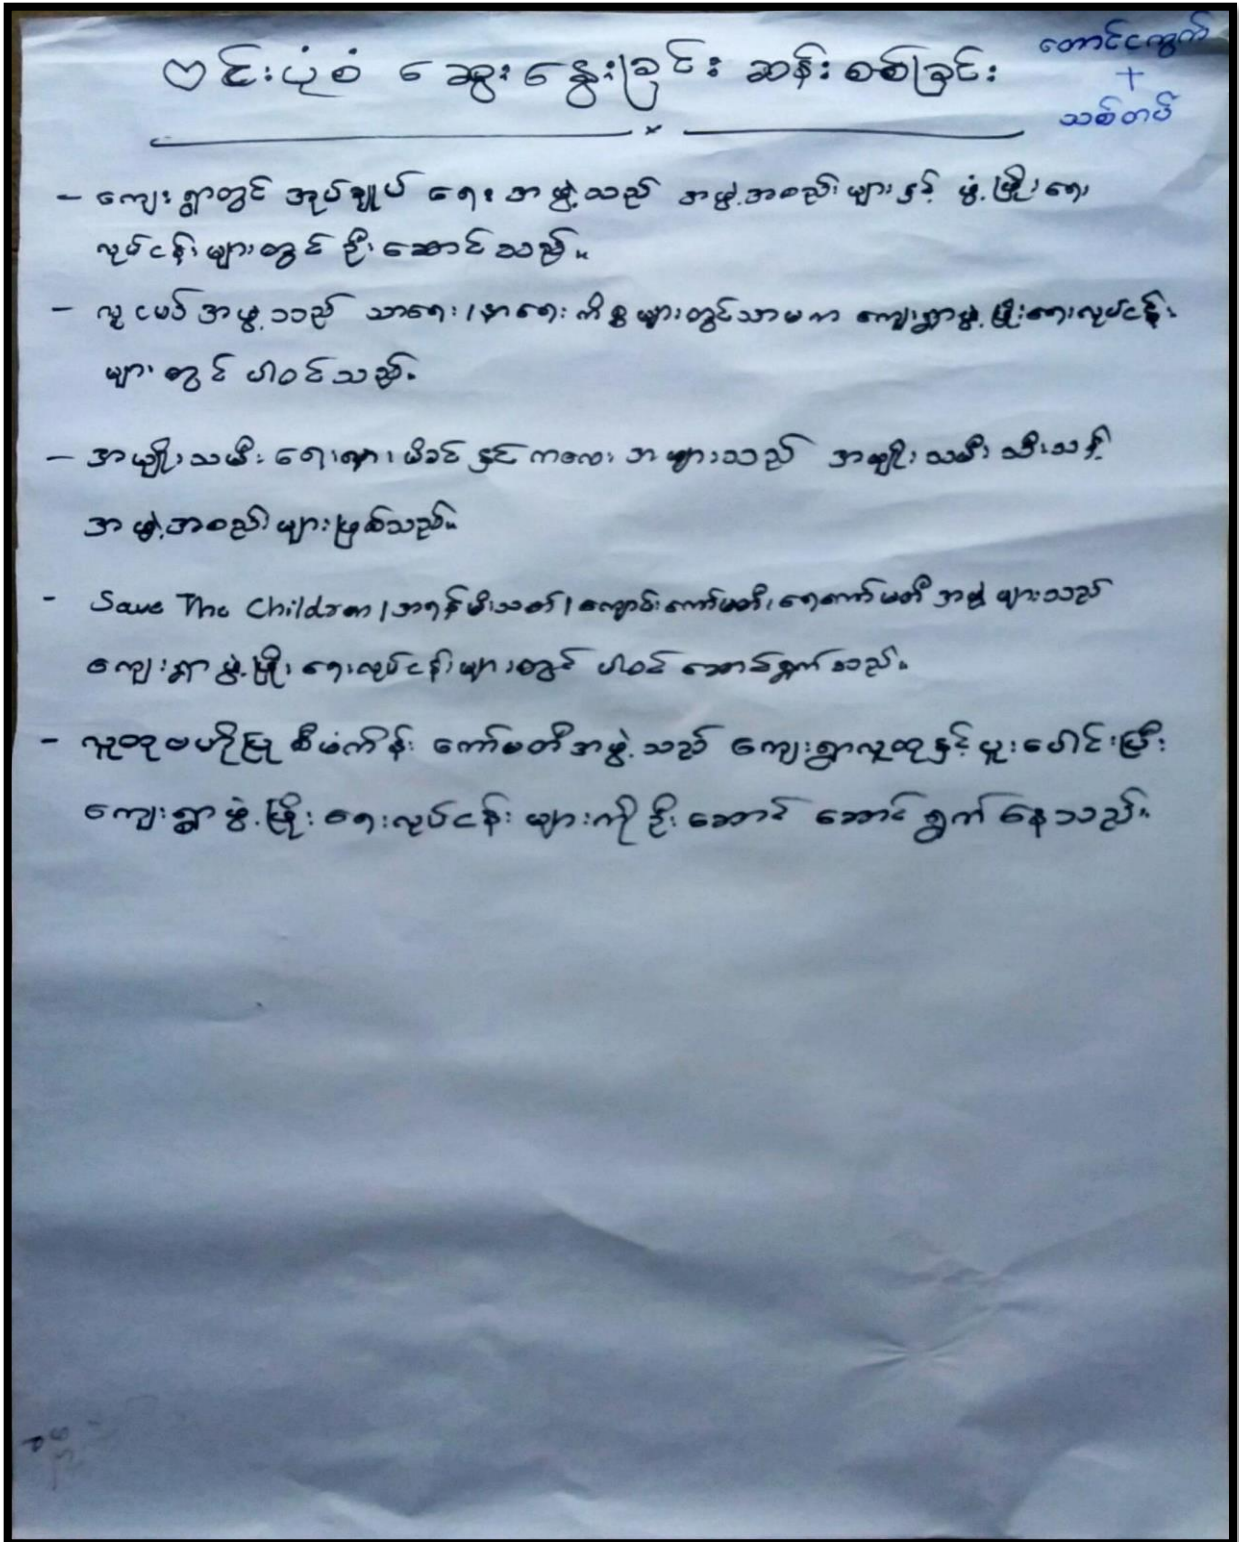 ဗင်းပုံစံ ဆွေးနွေးခြင်း ဆန်းစစ်ခြင်း
တောင်ငကွက်
+
သစ်တပ်
- ကျေးရွာတွင် အုပ်ချုပ် ရေး အဖွဲ့သည် အဖွဲ့အစည်းများနှင့် ဖွံ့ဖြိုးရေး
လုပ်ငန်းများတွင် ဦးဆောင်သည်။
- လူငယ် အဖွဲ့သည် သာရေး/နာရေး ကိစ္စများတွင်သာမက ကျေးရွာဖွံ့ဖြိုးရေးလုပ်ငန်း
များတွင် ပါဝင်သည်။
- အမျိုးသမီးရေးရာ၊ မိခင်နှင့်ကလေး အများသည် အမျိုးသမီး သီးသန့်
အဖွဲ့အစည်းများဖြစ်သည်။
- Save The Children/အရန်မီးသတ်/ကျောင်းကော်မတီ၊ ရေကော်မတီ အဖွဲ့များသည်
ကျေးရွာဖွံ့ဖြိုးရေးလုပ်ငန်းများတွင် ပါဝင် ဆောင်ရွက်သည်။
- လူထုဗဟိုပြု စီမံကိန်း ကော်မတီအဖွဲ့သည် ကျေးရွာလူထုနှင့် ပူးပေါင်းပြီး
ကျေးရွာဖွံ့ဖြိုးရေးလုပ်ငန်းများကို ဦးဆောင် ဆောင်ရွက်နေသည်။